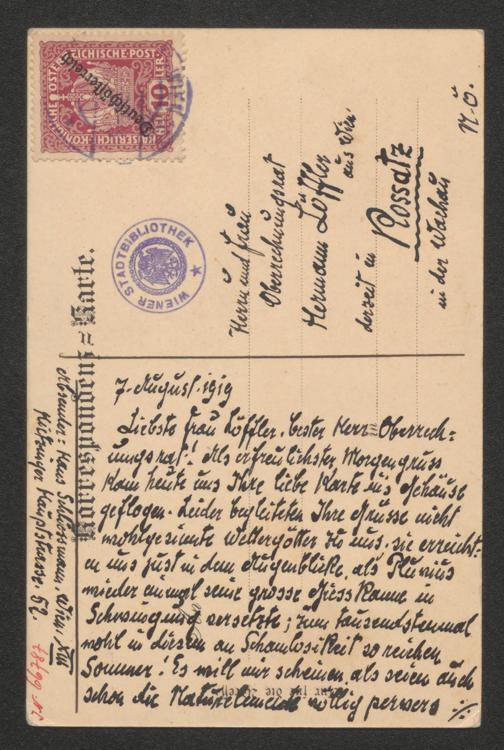 KAISERLICH-KÖNIGLICHE ÖSTERREICHISCHE POST
Deutschösterreich
10
HELLER
WIENER STADTBIBLIOTHEK
Korrespondenz-Karte.
Herrn und Frau
Oberrechnungsrat
Hermann Löffler
aus Wien
derzeit in
Rossatz
in der Wachau
N.Ö.
7. August. 1919
Liebste Frau Löffler, bester Herr Oberrech-
ungsrat! Als erfreulichster Morgengruss
kam heute uns Ihre liebe Karte ins Gehäuse
geflogen. Leider begleiteten Ihre Grüsse nicht
wohlgesinnte Wettergötter zu uns, sie erreicht-
en uns just in dem Augenblicke, als Pluvius
wieder einmal seine grosse Giesskanne in
Schwingung versetzte; zum tausendstenmal
wohl in diesem an Schamlosigkeit so reichen
Sommer! Es will mir scheinen, als seien auch
schon die Naturelemente völlig pervers ./.
Absender: Hans Schliessmann, Wien, XIII
Hauptstrasse. 52.